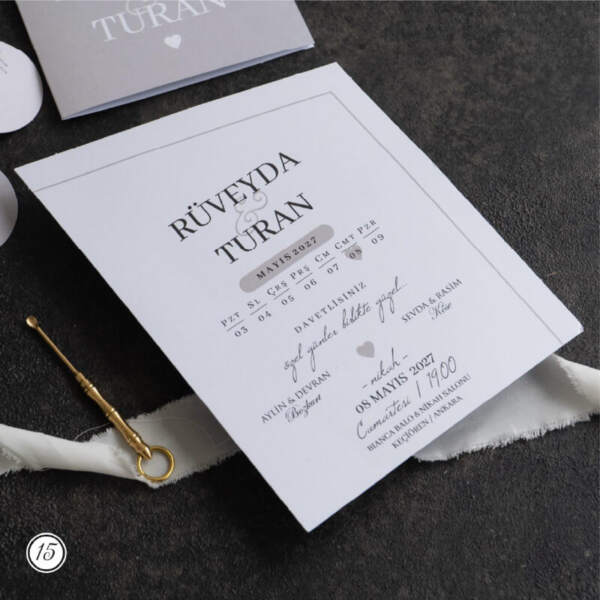 TURAN
RÜVEYDA
&
TURAN
MAYIS 2027
PZT SL ÇRŞ PRŞ CM CMT PZR
03 04 05 06 07 08 09
DAVETLİSİNİZ
özel günler birlikte güzel
AYLİN & DEVRAN
Bozkurt
SEVDA & RASİM
Köse
- nikah -
08 MAYIS 2027
Cumartesi | 19.00
BIANCA BALO & NİKAH SALONU
KEÇİÖREN / ANKARA
15